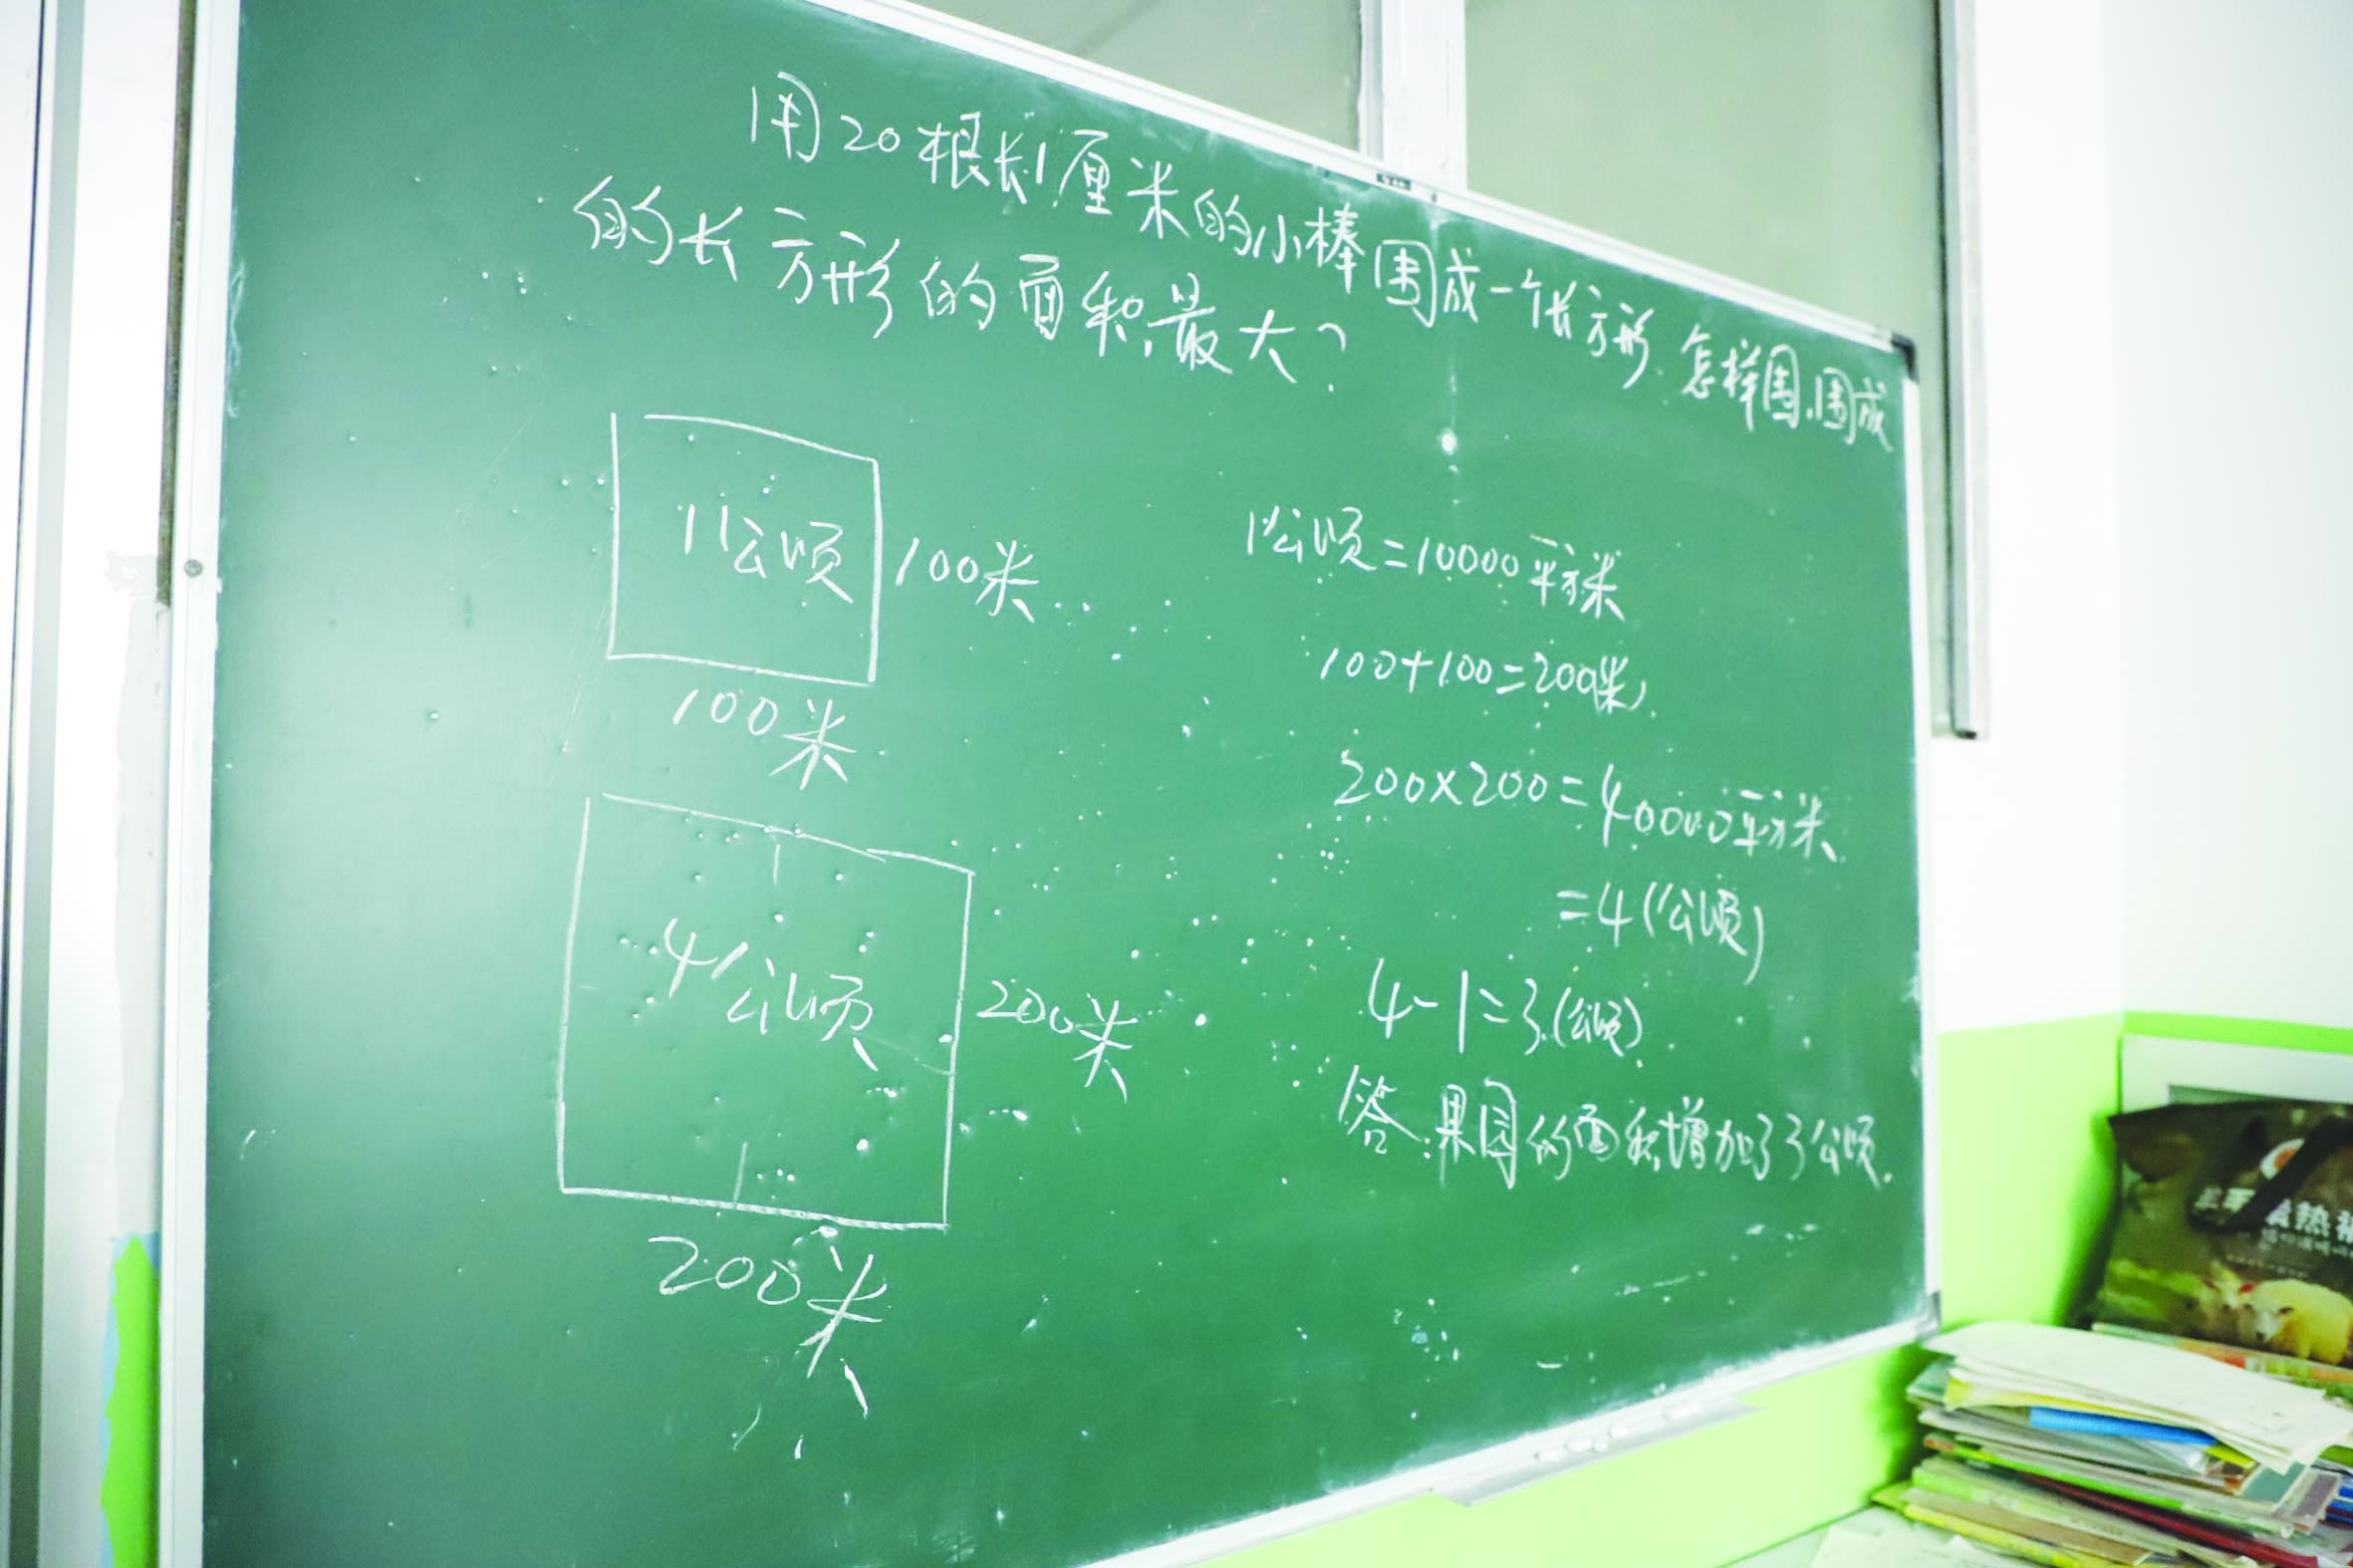 用20根长1厘米的小棒围成一个长方形,怎样围,围成
的长方形的面积最大?
1公顷
100米
100米
4公顷
200米
200米
1公顷=10000平方米
100+100=200(米)
200×200=40000平方米
=4(公顷)
4-1=3(公顷)
答:果园的面积增加了3公顷.